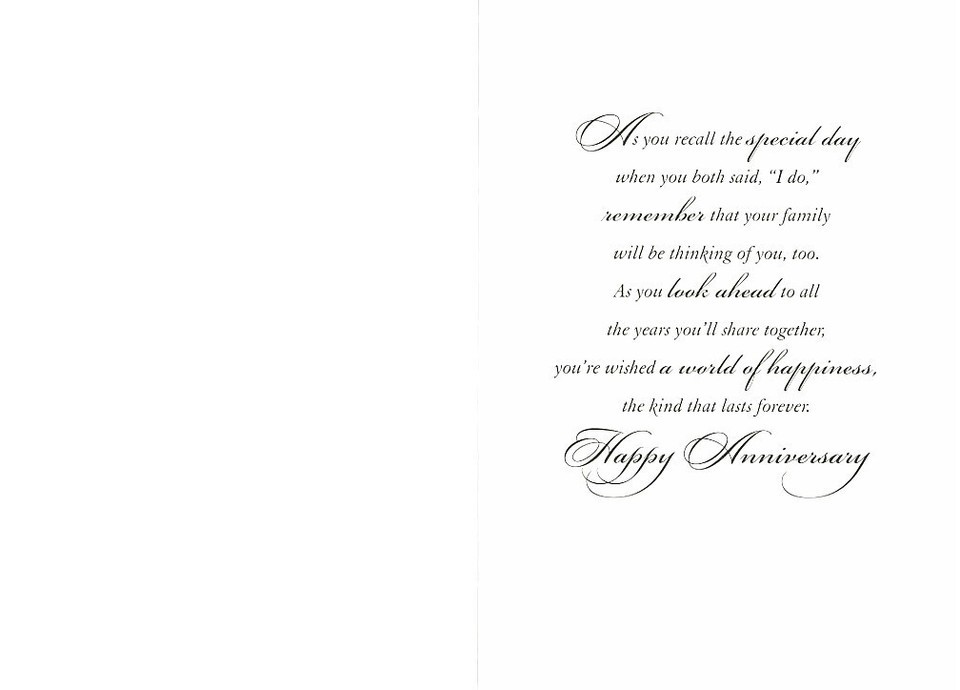 As you recall the special day
when you both said, “I do,”
remember that your family
will be thinking of you, too.
As you look ahead to all
the years you’ll share together,
you’re wished a world of happiness,
the kind that lasts forever.
Happy Anniversary